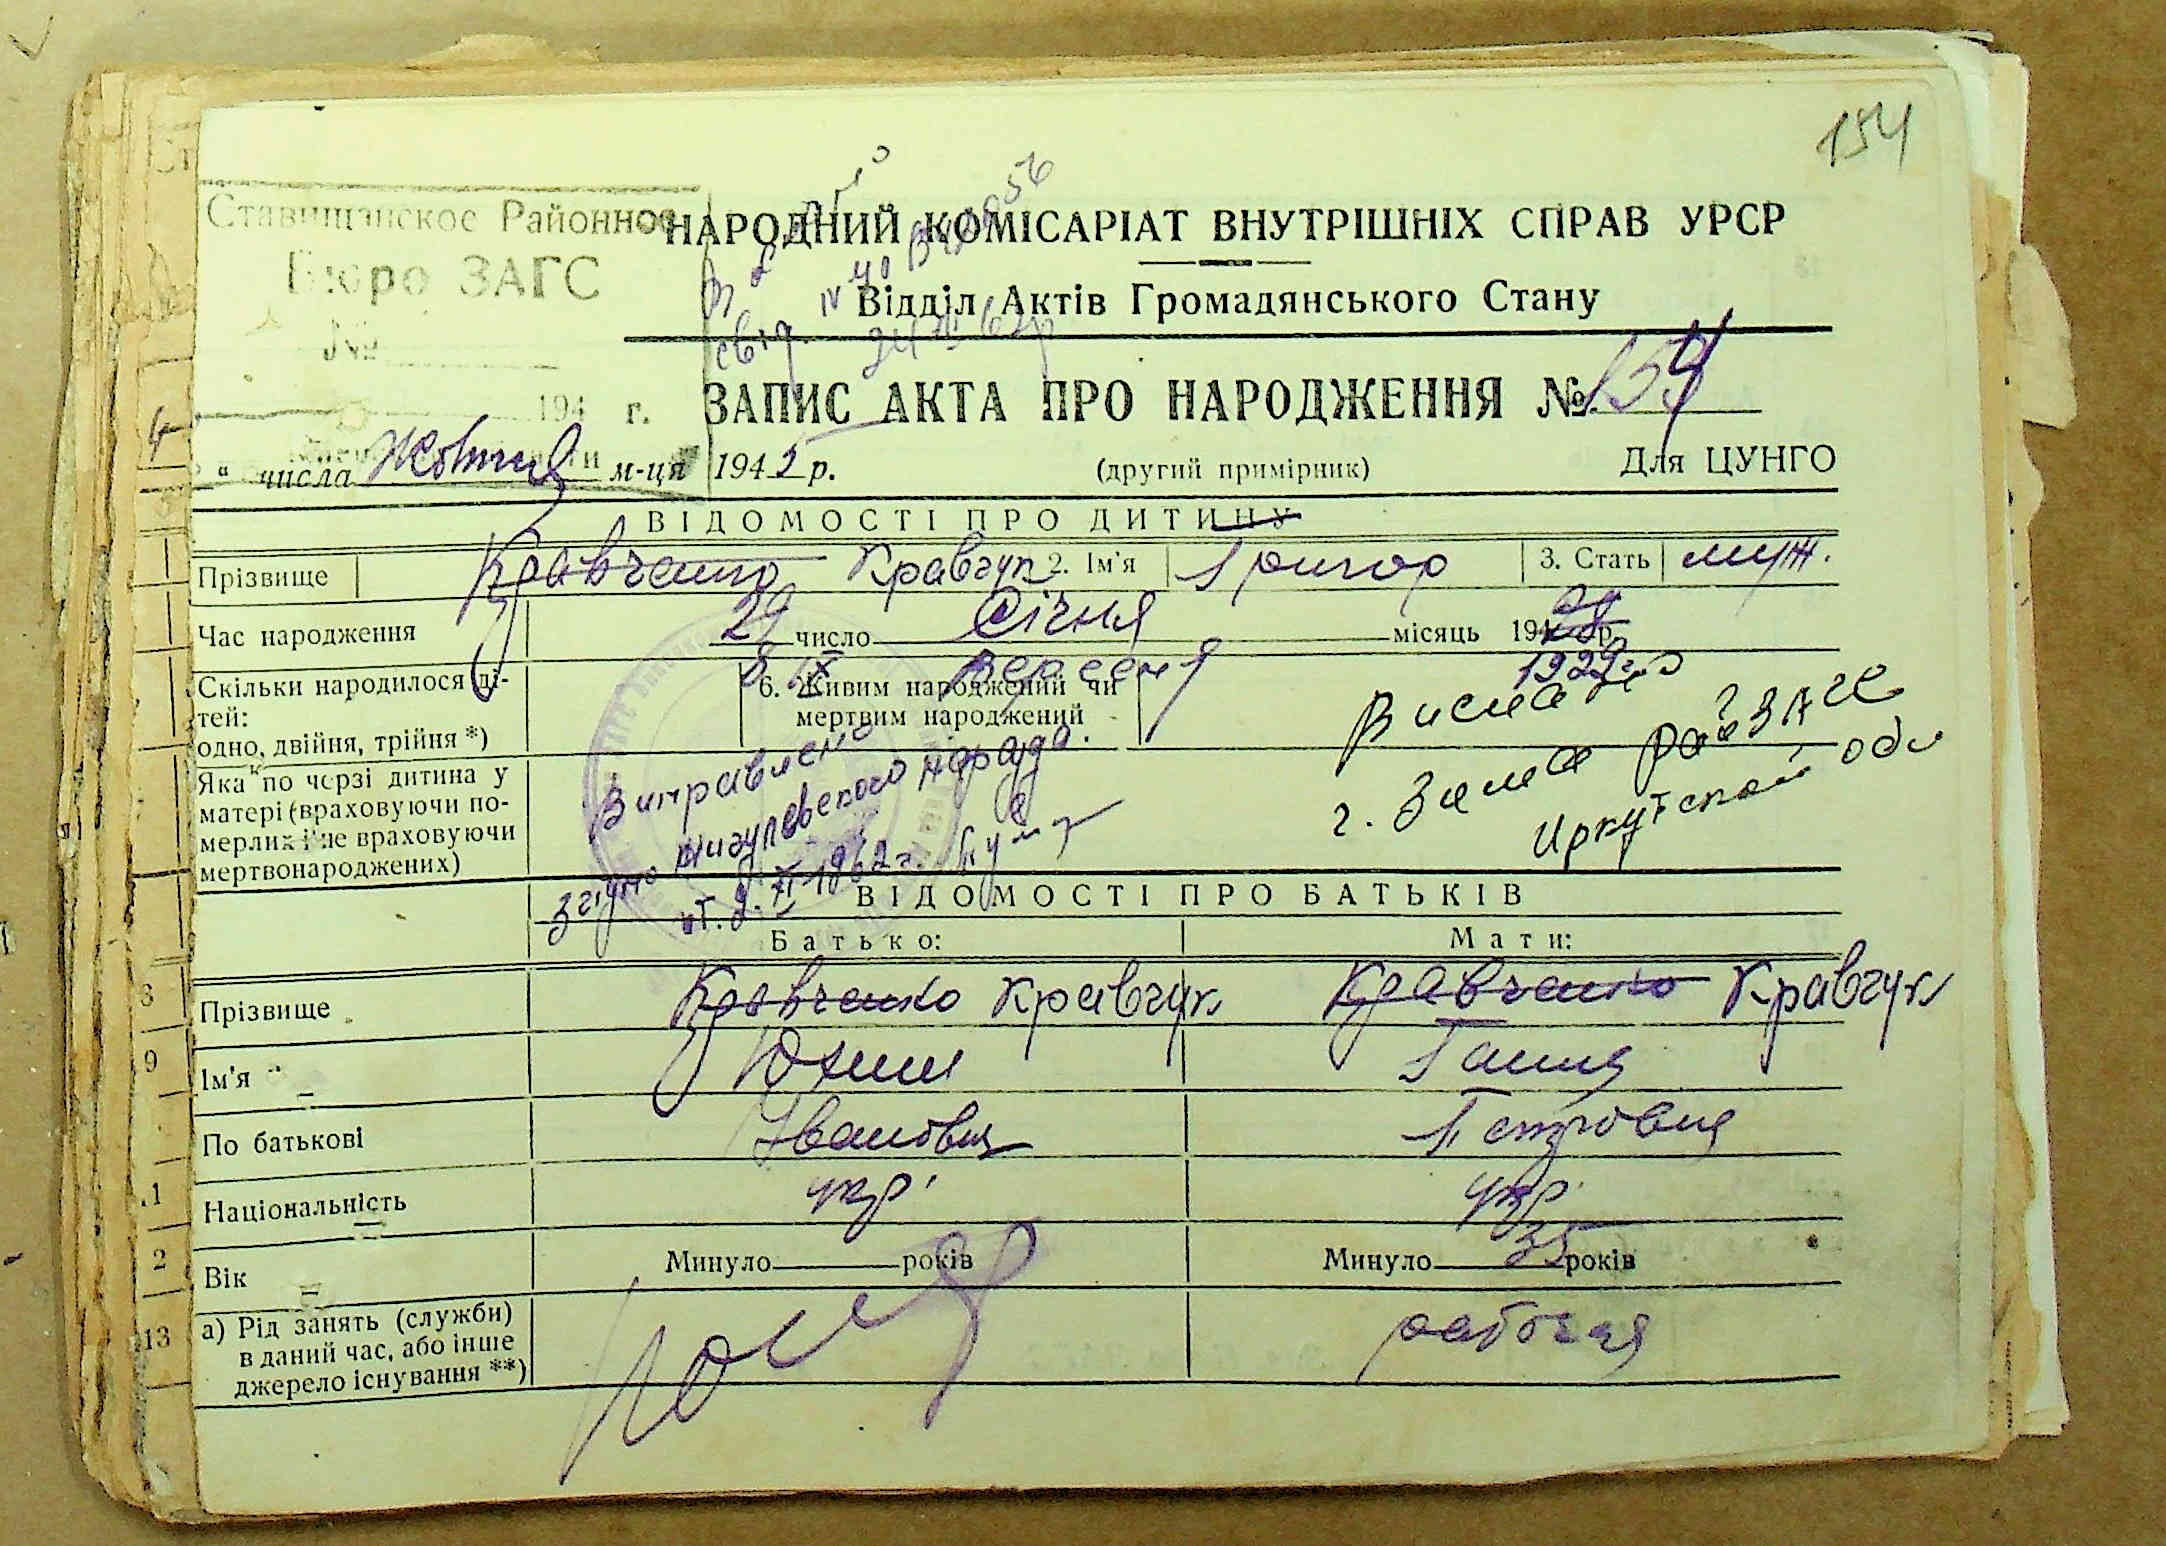 154
Ставищанское Районное
Бюро ЗАГС
№
194 г.
НАРОДНИЙ КОМІСАРІАТ ВНУТРІШНІХ СПРАВ УРСР
Відділ Актів Громадянського Стану
ЗАПИС АКТА ПРО НАРОДЖЕННЯ № 154
„ “ числа Жовтня м-ця 1945 р. (другий примірник) Для ЦУНГО
ВІДОМОСТІ ПРО ДИТИНУ
Прізвище Кравченко Кравчук 2. Ім'я Григор 3. Стать муж.
Час народження 29 число Січня місяць 194 р.
8 IX Вересня 1929 г.
Скільки народилося ді-
тей:
одно, двійня, трійня *)
6. Живим народжений чи
мертвим народжений
Яка по черзі дитина у
матері (враховуючи по-
мерлих і не враховуючи
мертвонароджених)
Виправлено
згідно Жигулевского нарсуда.
от. 9. XI 1962 г.
г. Зима райЗАГС
Иркутской обл
ВІДОМОСТІ ПРО БАТЬКІВ
Батько: Мати:
Прізвище Кравченко Кравчук Кравченко Кравчук
Ім'я Юхим Ганна
По батькові Іванович Петровна
Національність укр. укр.
Вік Минуло років Минуло 35 років
13 а) Рід занять (служби)
в даний час, або інше
джерело існування **)
рабочая